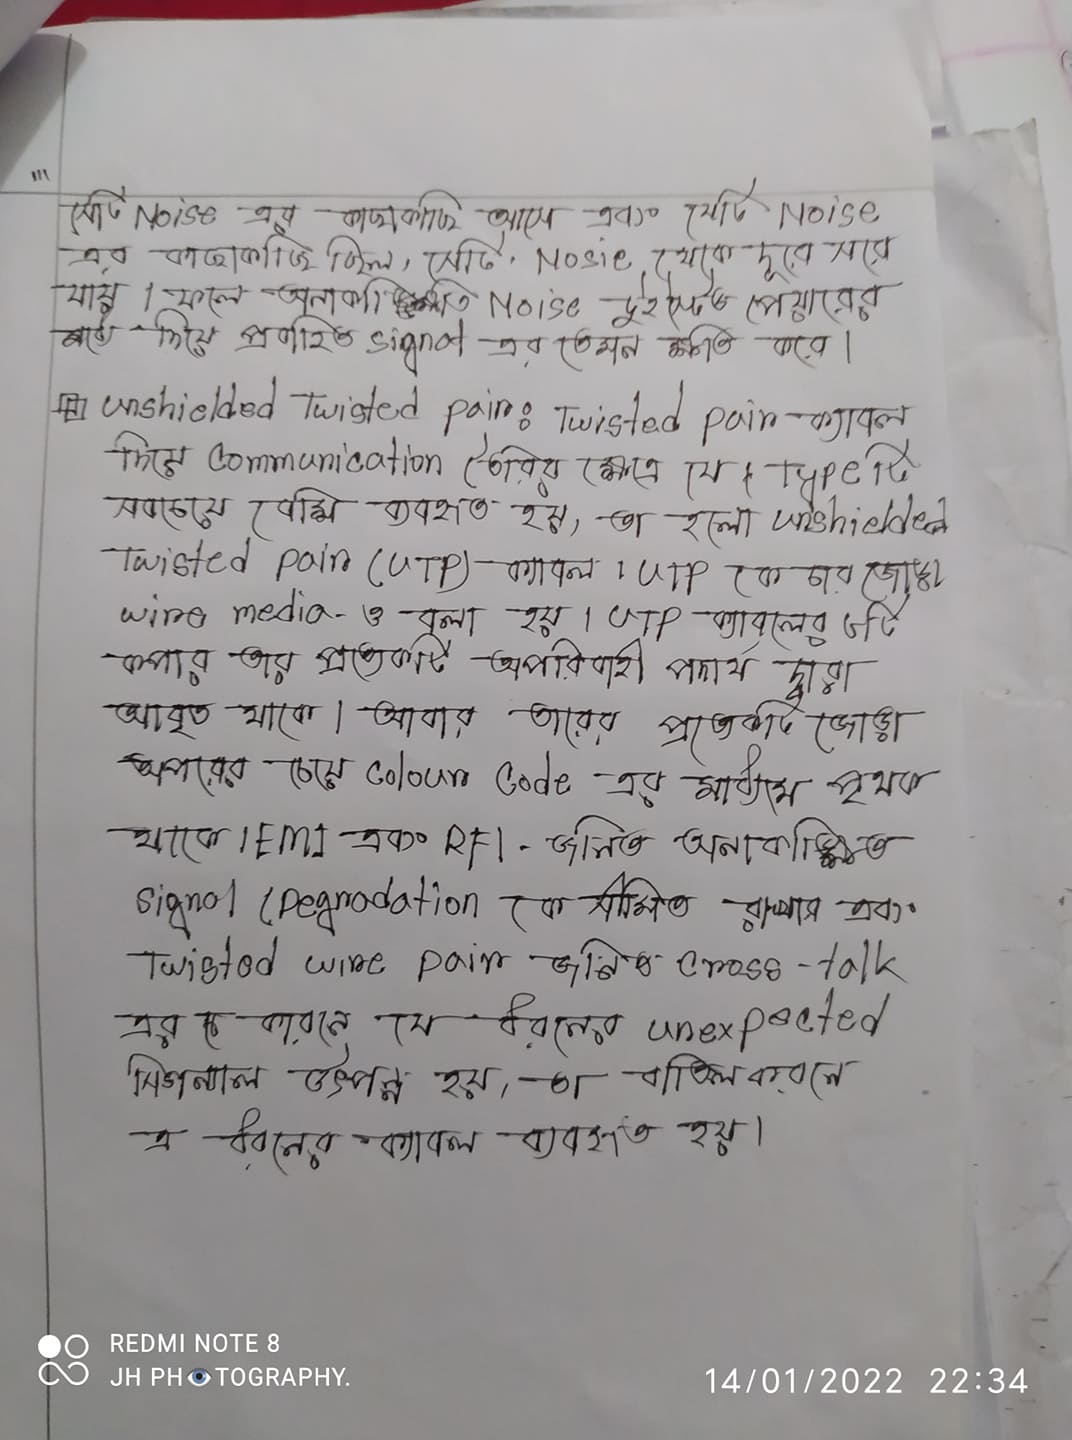 "'
সেটি Noise এর কাছাকাছি আসে এবং যেটি Noise
এর কাছাকাছি ছিল, সেটি, Nosie থেকে দূরে সরে
যায়। ফলে অনাকাঙ্ক্ষিত Noise টুইস্টেড পেয়ারের
মধ্যে দিয়ে প্রবাহিত signal এর তেমন ক্ষতি করে।
unshielded Twisted pair: Twisted pair ক্যাবল
দিয়ে Communication তৈরির ক্ষেত্রে যে Type টি
সবচেয়ে বেশি ব্যবহৃত হয়, তা হলো unshielded
Twisted pair (UTP) ক্যাবল। UTP কে চার জোড়া
wire media-ও বলা হয়। UTP ক্যাবলের ৮টি
কপার তার প্রত্যেকটি অপরিবাহী পদার্থ দ্বারা
আবৃত থাকে। আবার তারের প্রত্যেকটি জোড়া
অপরের চেয়ে Colour Code এর মাধ্যমে পৃথক
থাকে। EMI এবং RFI - জনিত অনাকাঙ্ক্ষিত
signal Degradation কে সীমিত রাখার এবং
Twisted wire pair জনিত Cross-talk
এর কারনে যে ধরনের unexpected
সিগন্যাল উৎপন্ন হয়, তা বাতিল করনে
এ ধরনের ক্যাবল ব্যবহৃত হয়।
REDMI NOTE 8
JH PHOTOGRAPHY.
14/01/2022 22:34